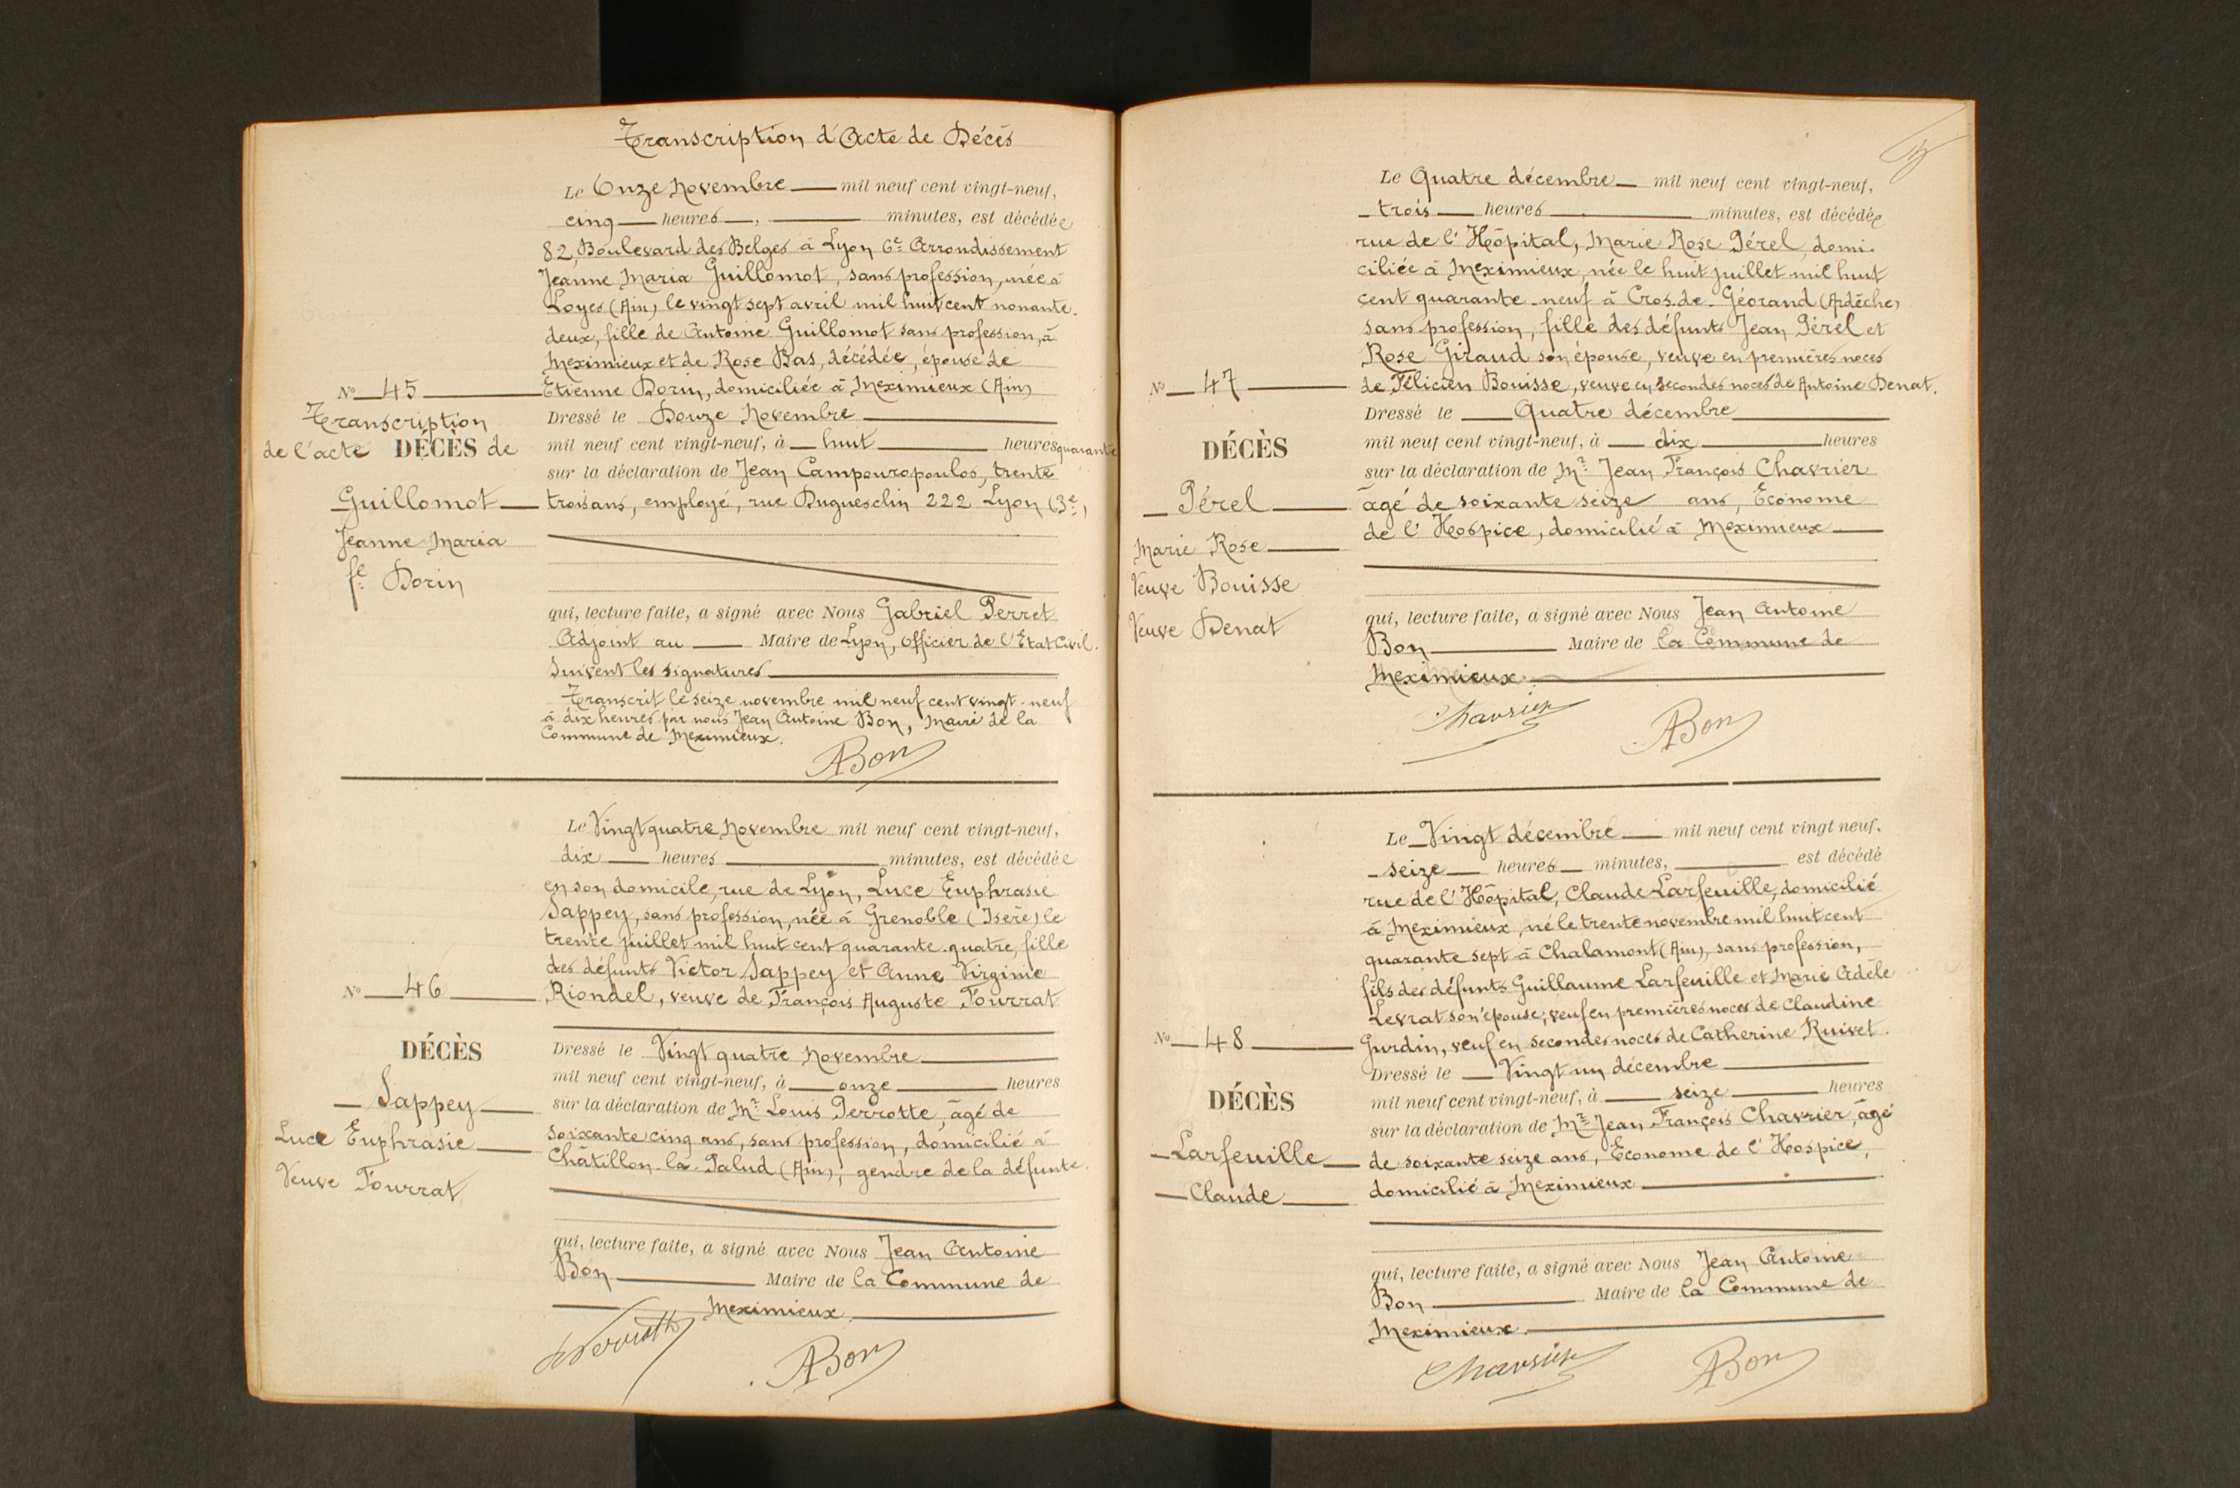 Transcription d'Acte de Décès
Le Onze Novembre mil neuf cent vingt-neuf,
cinq heures, minutes, est décédée
82, Boulevard des Belges à Lyon 6e Arrondissement
Jeanne Maria Guillomot, sans profession, née à
Loyes (Ain) le vingt sept avril mil huit cent nonante-
deux, fille de Antoine Guillomot sans profession, à
Meximieux et de Rose Bas, décédée, épouse de
Etienne Dorin, domiciliée à Meximieux (Ain)
No 45
Transcription
de l'acte DÉCÈS de
Guillomot
Jeanne Maria
fe Dorin
Dressé le Douze Novembre
mil neuf cent vingt-neuf, à huit heures quarante
sur la déclaration de Jean Campouropoulos, trente
trois ans, employé, rue Duguesclin 222 Lyon (3e)
qui, lecture faite, a signé avec Nous Gabriel Perret
Adjoint au Maire de Lyon, Officier de l'Etat Civil.
Suivent les signatures
Transcrit le seize novembre mil neuf cent vingt-neuf
à dix heures par nous Jean Antoine Bon, Maire de la
Commune de Meximieux.
ABon
Le Vingt quatre Novembre mil neuf cent vingt-neuf,
dix heures minutes, est décédée
en son domicile, rue de Lyon, Luce Euphrasie
Sappey, sans profession, née à Grenoble (Isère) le
trente juillet mil huit cent quarante-quatre, fille
des défunts Victor Sappey et Anne Virginie
Riondel, veuve de François Auguste Fourrat
No 46
DÉCÈS
Sappey
Luce Euphrasie
Veuve Fourrat
Dressé le Vingt quatre Novembre
mil neuf cent vingt-neuf, à onze heures
sur la déclaration de Mr Louis Perrotte, âgé de
soixante cinq ans, sans profession, domicilié à
Châtillon-la-Palud (Ain), gendre de la défunte.
qui, lecture faite, a signé avec Nous Jean Antoine
Bon Maire de la Commune de
Meximieux
ABon
Le Quatre décembre mil neuf cent vingt-neuf,
trois heures minutes, est décédée
rue de l'Hôpital, Marie Rose Pérel, domi-
ciliée à Meximieux, née le huit juillet mil huit
cent quarante-neuf à Cros-de-Géorand (Ardèche)
sans profession, fille des défunts Jean Pérel et
Rose Giraud son épouse, veuve en premières noces
de Félicien Bouisse, veuve en secondes noces de Antoine Denat.
No 47
DÉCÈS
Pérel
Marie Rose
Veuve Bouisse
Veuve Denat
Dressé le Quatre décembre
mil neuf cent vingt-neuf, à dix heures
sur la déclaration de Mr Jean François Chavrier
âgé de soixante seize ans, Econome
de l'Hospice, domicilié à Meximieux
qui, lecture faite, a signé avec Nous Jean Antoine
Bon Maire de la Commune de
Meximieux
Chavrier ABon
Le Vingt décembre mil neuf cent vingt neuf,
seize heures minutes, est décédé
rue de l'Hôpital, Claude Larfeuille, domicilié
à Meximieux, né le trente novembre mil huit cent
quarante sept à Chalamont (Ain), sans profession,
fils des défunts Guillaume Larfeuille et Marie Adèle
Levrat son épouse; veuf en premières noces de Claudine
Gurdin, veuf en secondes noces de Catherine Ruivet.
No 48
DÉCÈS
Larfeuille
Claude
Dressé le Vingt un décembre
mil neuf cent vingt-neuf, à seize heures
sur la déclaration de Mr Jean François Chavrier, âgé
de soixante seize ans, Econome de l'Hospice,
domicilié à Meximieux
qui, lecture faite, a signé avec Nous Jean Antoine
Bon Maire de la Commune de
Meximieux.
Chavrier ABon